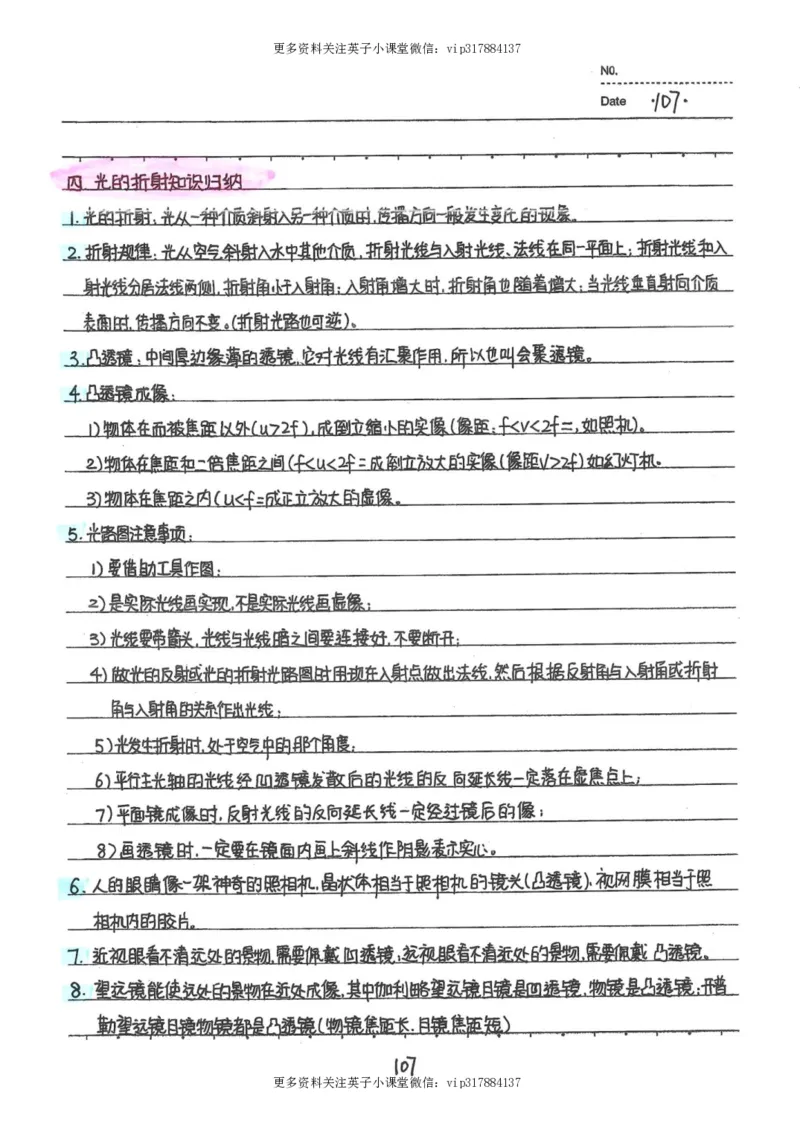 更多资料关注英子小课堂微信：vip317884137
No.
Date ·107·
四. 光的折射知识归纳
1. 光的折射：光从一种介质斜射入另一种介质时，传播方向一般发生变化的现象。
2. 折射规律：光从空气斜射入水中其他介质，折射光线与入射光线、法线在同一平面上；折射光线和入
射光线分居法线两侧，折射角小于入射角；入射角增大时，折射角也随着增大；当光线垂直射向介质
表面时，传播方向不变。(折射光路也可逆)。
3. 凸透镜：中间厚边缘薄的透镜，它对光线有汇聚作用，所以也叫会聚透镜。
4. 凸透镜成像：
1)物体在而被焦距以外(u>2f)，成倒立缩小的实像(像距：f<v<2f=，如照机)。
2)物体在焦距和二倍焦距之间(f<u<2f=成倒立放大的实像(像距V>2f)如幻灯机。
3)物体在焦距之内(u<f=成正立放大的虚像。
5. 光路图注意事项：
1)要借助工具作图；
2)是实际光线画实现，不是实际光线画虚像；
3)光线要带箭头，光线与光线暗之间要连接好，不要断开；
4)做光的反射或光的折射光路图时用现在入射点做出法线，然后根据反射角与入射角或折射
角与入射角的关系作出光线；
5)光发生折射时，处于空气中的那个角度；
6)平行主光轴的光线经凹透镜发散后的光线的反向延长线一定落在虚焦点上；
7)平面镜成像时，反射光线的反向延长线一定经过镜后的像；
8)画透镜时，一定要在镜面内画上斜线作阴影表示实心。
6. 人的眼睛像一架神奇的照相机，晶状体相当于照相机的镜头(凸透镜)、视网膜相当于照
相机内的胶片。
7. 近视眼看不清远处的景物，需要佩戴凹透镜；远视眼看不清近处的景物，需要佩戴凸透镜。
8. 望远镜能使远处的景物在近处成像，其中伽利略望远镜目镜是凹透镜，物镜是凸透镜；开普
勒望远镜目镜物镜都是凸透镜(物镜焦距长，目镜焦距短)
107
更多资料关注英子小课堂微信：vip317884137